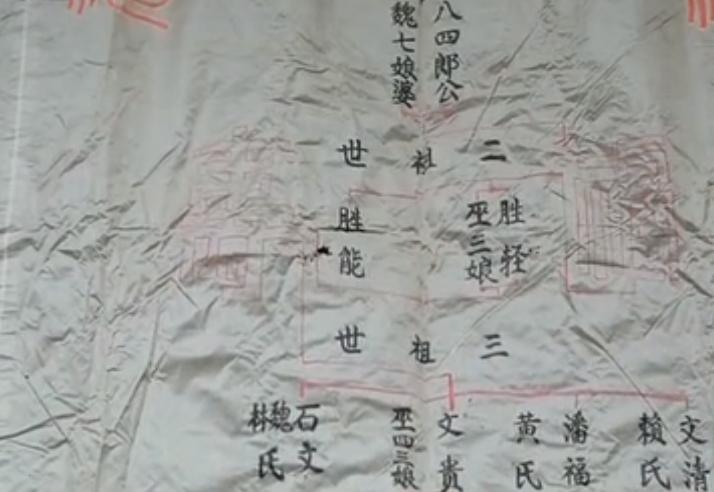 八四郎公
魏七娘婆
二祖世
胜轻
巫三娘
胜能
三祖世
文清
赖氏
潘福
黄氏
文贵
巫四三娘
石文
魏林氏